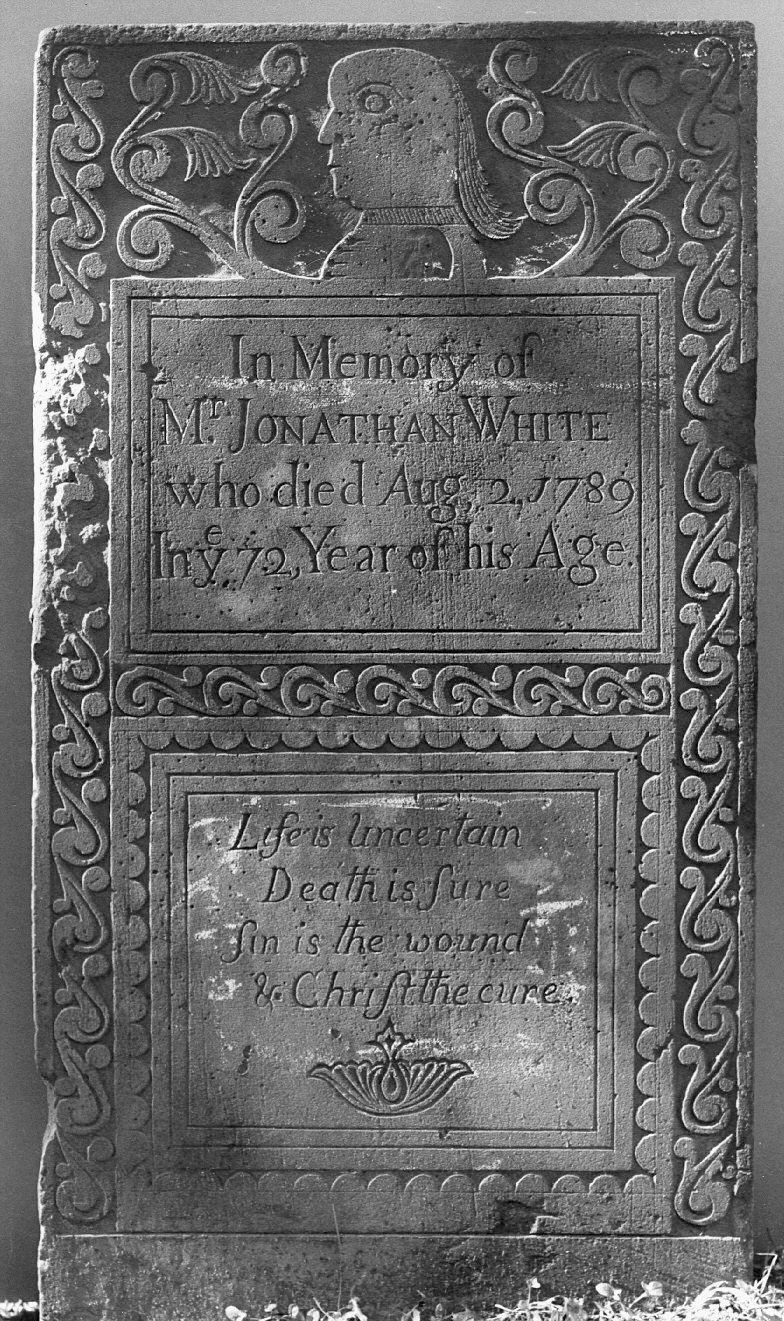 In Memory of
Mr. JONATHAN WHITE
who died Aug. 2, 1789
In ye 72, Year of his Age.
Life is Uncertain
Death is ſure
ſin is the wound
& Chriſt the cure.